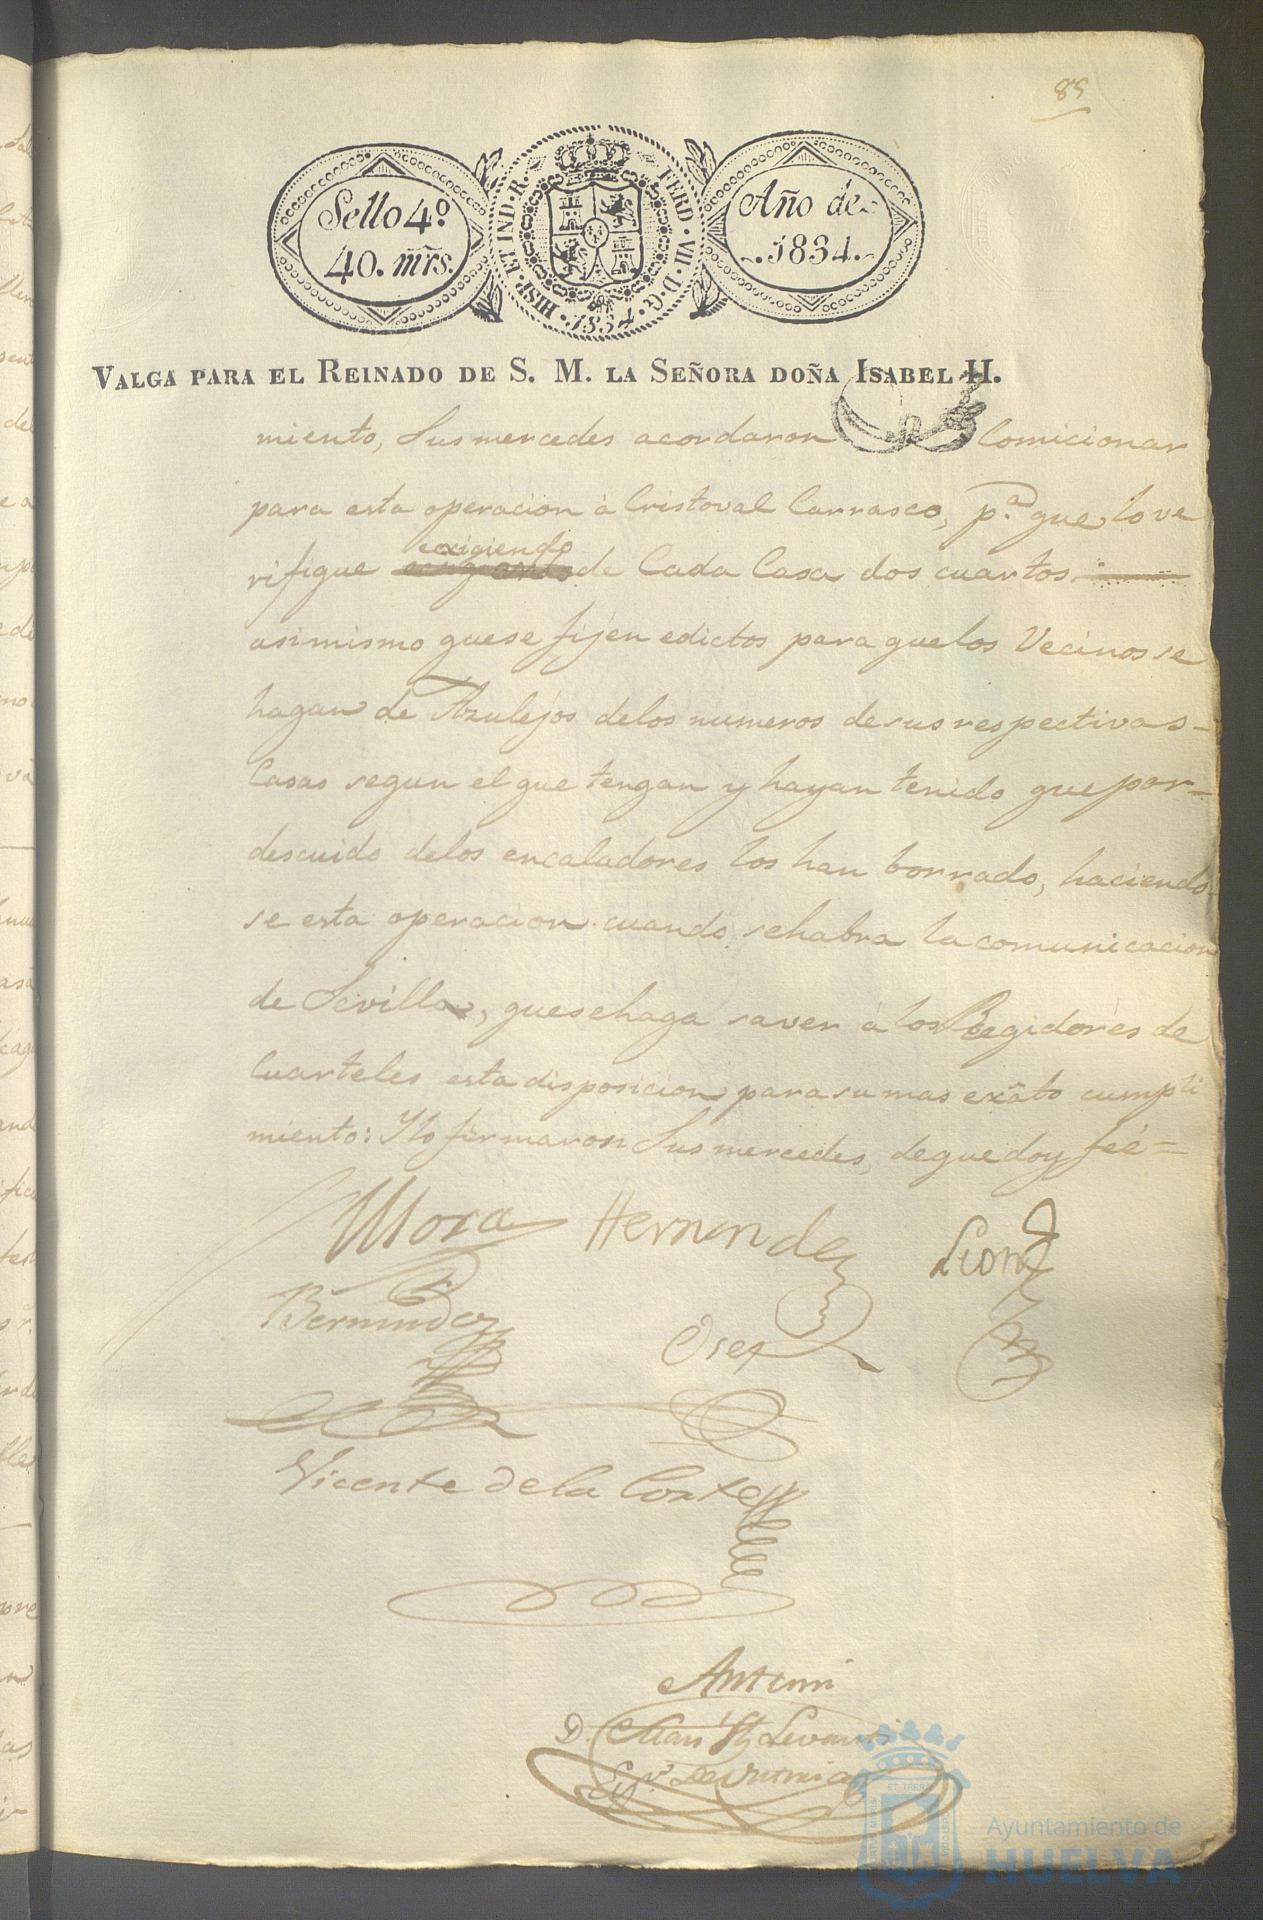 89
Sello 4º
40. mrs.
HISP. ET IND. R. FERD. VII. D. G. 1834.
Año de
1834.
VALGA PARA EL REINADO DE S. M. LA SEÑORA DOÑA ISABEL II.
miento, Sus mercedes acordaron Comicionar
para esta operacion á Cristoval Carrasco, p.ª que lo ve
rifique exigiendo de Cada Casa dos cuartos
asimismo que se fijen edictos para que los Vecinos se
hagan de Azulejos de los numeros de sus respectivas
Casas segun el que tengan y hayan tenido que por
descuido de los encaladores los han borrado, haciendo
se esta operacion cuando se habra la comunicacion
de Sevilla, que se haga saver á los Regidores de
Cuarteles esta disposicion para su mas exâto cumpli
miento: Y lo firmaron Sus mercedes, de que doy fée=
Mora Hernandez Leon
Bermudez
Vicente de la Corte
Antemi
D.
Ayuntamiento de
HUELVA